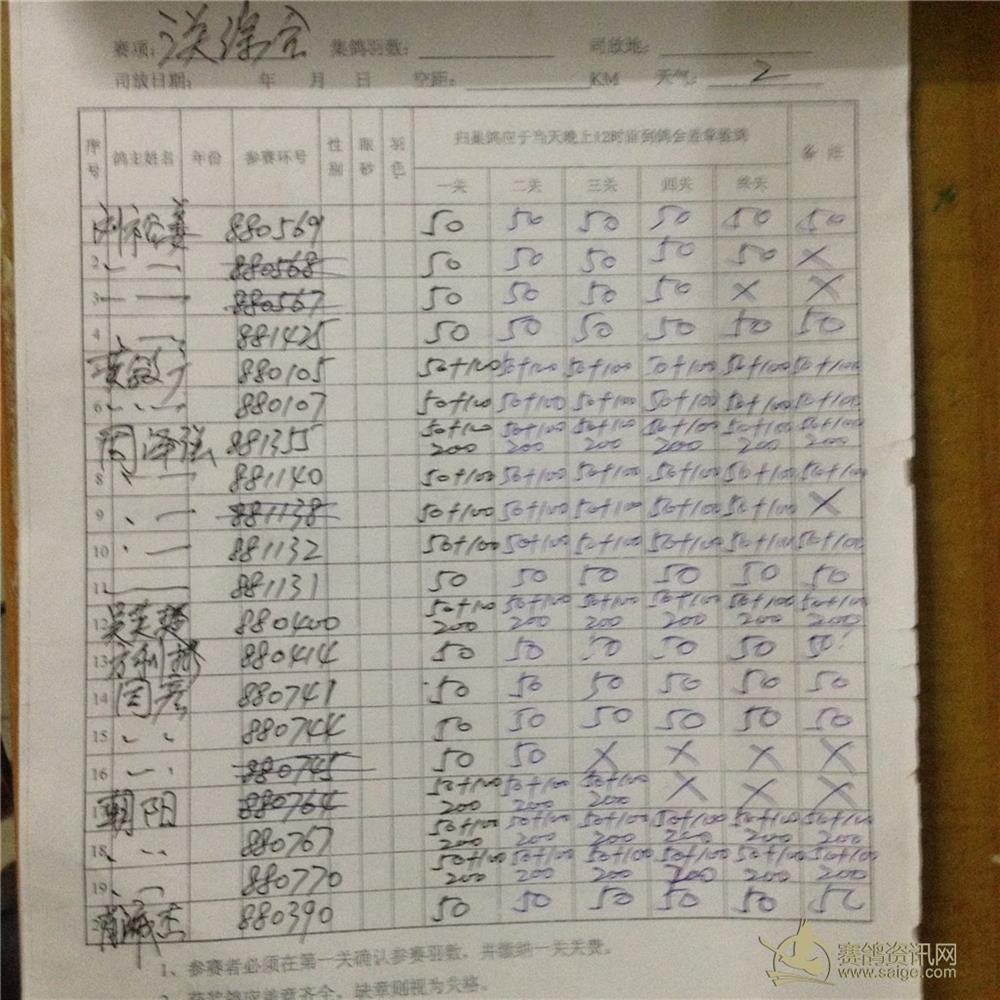 赛项: 集鸽羽数: 司放地:
司放日期: 年 月 日 空距: KM 天气: 2
序号 鸽主姓名 年份 参赛环号 性别 眼砂 羽色 归巢鸽应于当天晚上12时前到鸽会盖章验鸽 备注
一关 二关 三关 四关 终关
880569 50 50 50 50 50 50
2 880568 50 50 50 50 50 X
3 880567 50 50 50 50 X X
4 881425 50 50 50 50 50 50
880105 50+100 50+100 50+100 50+100 50+100 50+100
6 880107 50+100 50+100 50+100 50+100 50+100 50+100
周泽强 881355 50+100 200 50+100 200 50+100 200 50+100 200 50+100 200 50+100 200
8 881140 50+100 50+100 50+100 50+100 50+100 50+100
9 881138 50+100 50+100 50+100 50+100 50+100 X
10 881132 50+100 50+100 50+100 50+100 50+100 50+100
11 881131 50 50 50 50 50 50
12 880400 50+100 200 50+100 200 50+100 200 50+100 200 50+100 200 50+100 200
13 880414 50 50 50 50 50 50
14 周彦 880741 50 50 50 50 50 50
15 880744 50 50 50 50 50 50
16 880745 50 50 X X X X
朝阳 880764 50+100 200 50+100 200 50+100 200 X X X
18 880767 50+100 200 50+100 200 50+100 200 50+100 200 50+100 200 50+100 200
19 880770 50+100 200 50+100 200 50+100 200 50+100 200 50+100 200 50+100 200
880390 50 50 50 50 50 50
1、参赛者必须在第一关确认参赛羽数，并缴纳一关关费。
2、获奖鸽应盖章齐全，缺章则视为失格。
赛鸽资讯网
www.saige.com